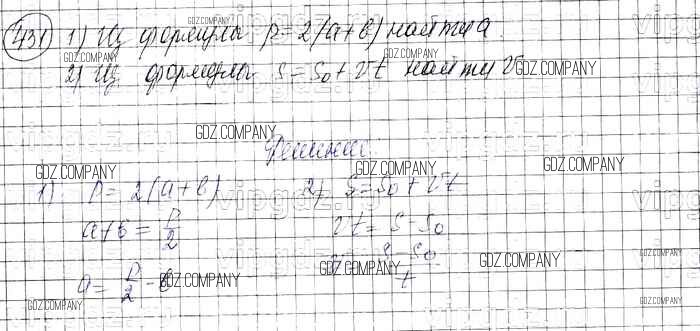 431 1) Из формулы p = 2(a+b) найти a
GDZ.COMPANY
GDZ.COMPANY
2) Из формулы s = s₀ + vt найти v
GDZ.COMPANY
GDZ.COMPANY
GDZ.COMPANY
Решение:
GDZ.COMPANY
GDZ.COMPANY
GDZ.COMPANY
1) p = 2(a+b) 2) s = s₀ + vt
a+b = p/2 vt = s - s₀
GDZ.COMPANY
s - s₀ / t
a = p/2 - b
GDZ.COMPANY
GDZ.COMPANY
GDZ.COMPANY
GDZ.COMPANY
vipgdz.ru